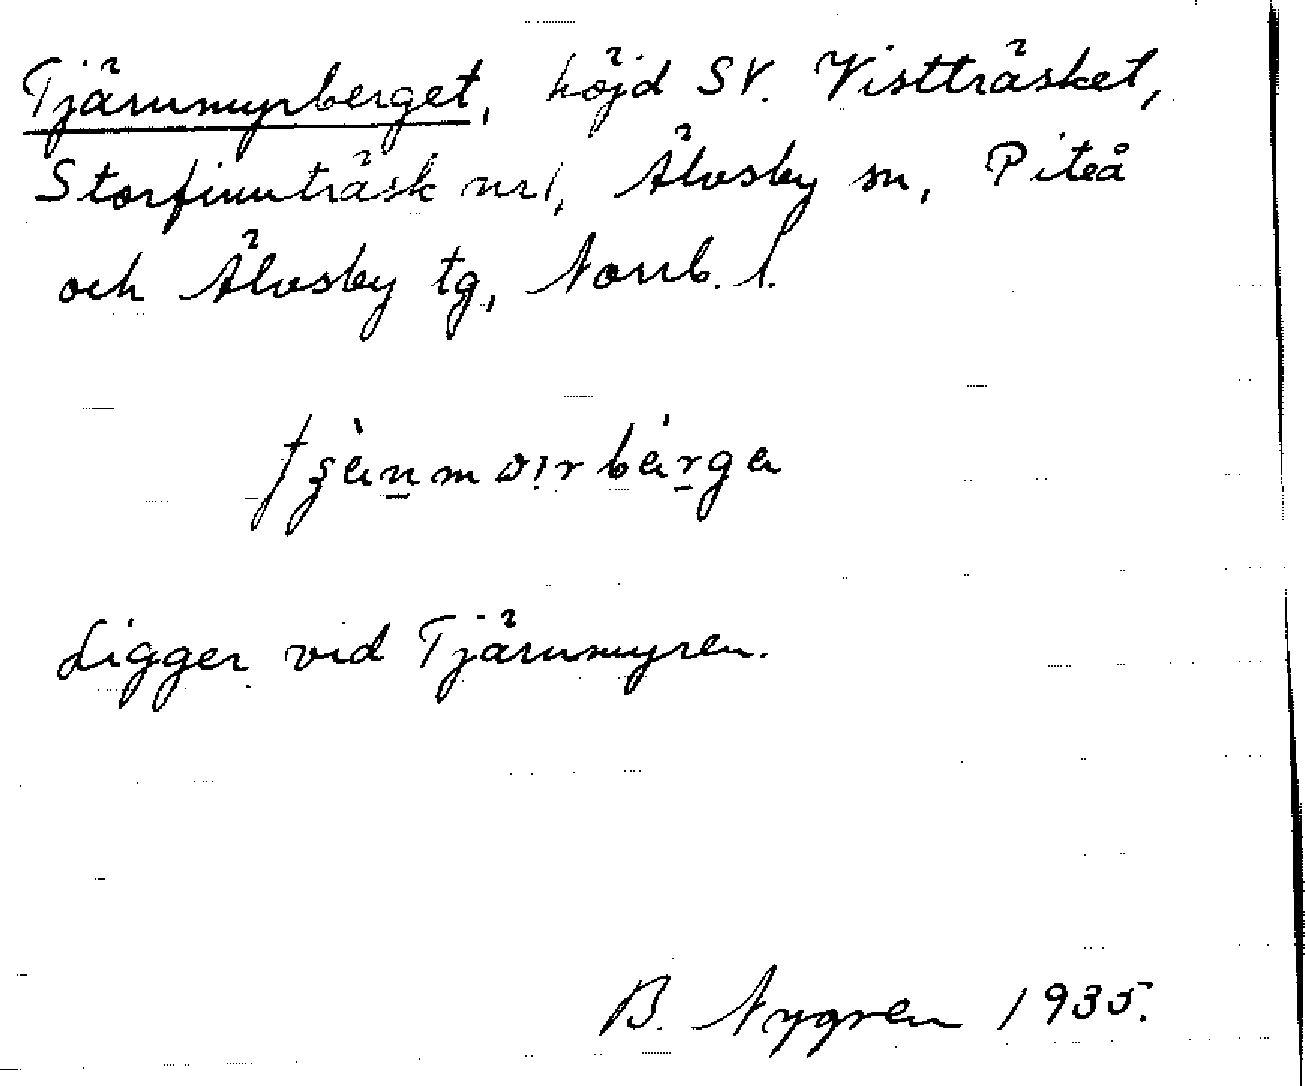 Tjärnmyrberget, höjd SV. Vistträsket,
Storfinnträsk nr 1, Älvsby sn, Piteå
och Älvsby tg, Norrb. l.
Ligger vid Tjärnmyren.
B. Nygren 1935.